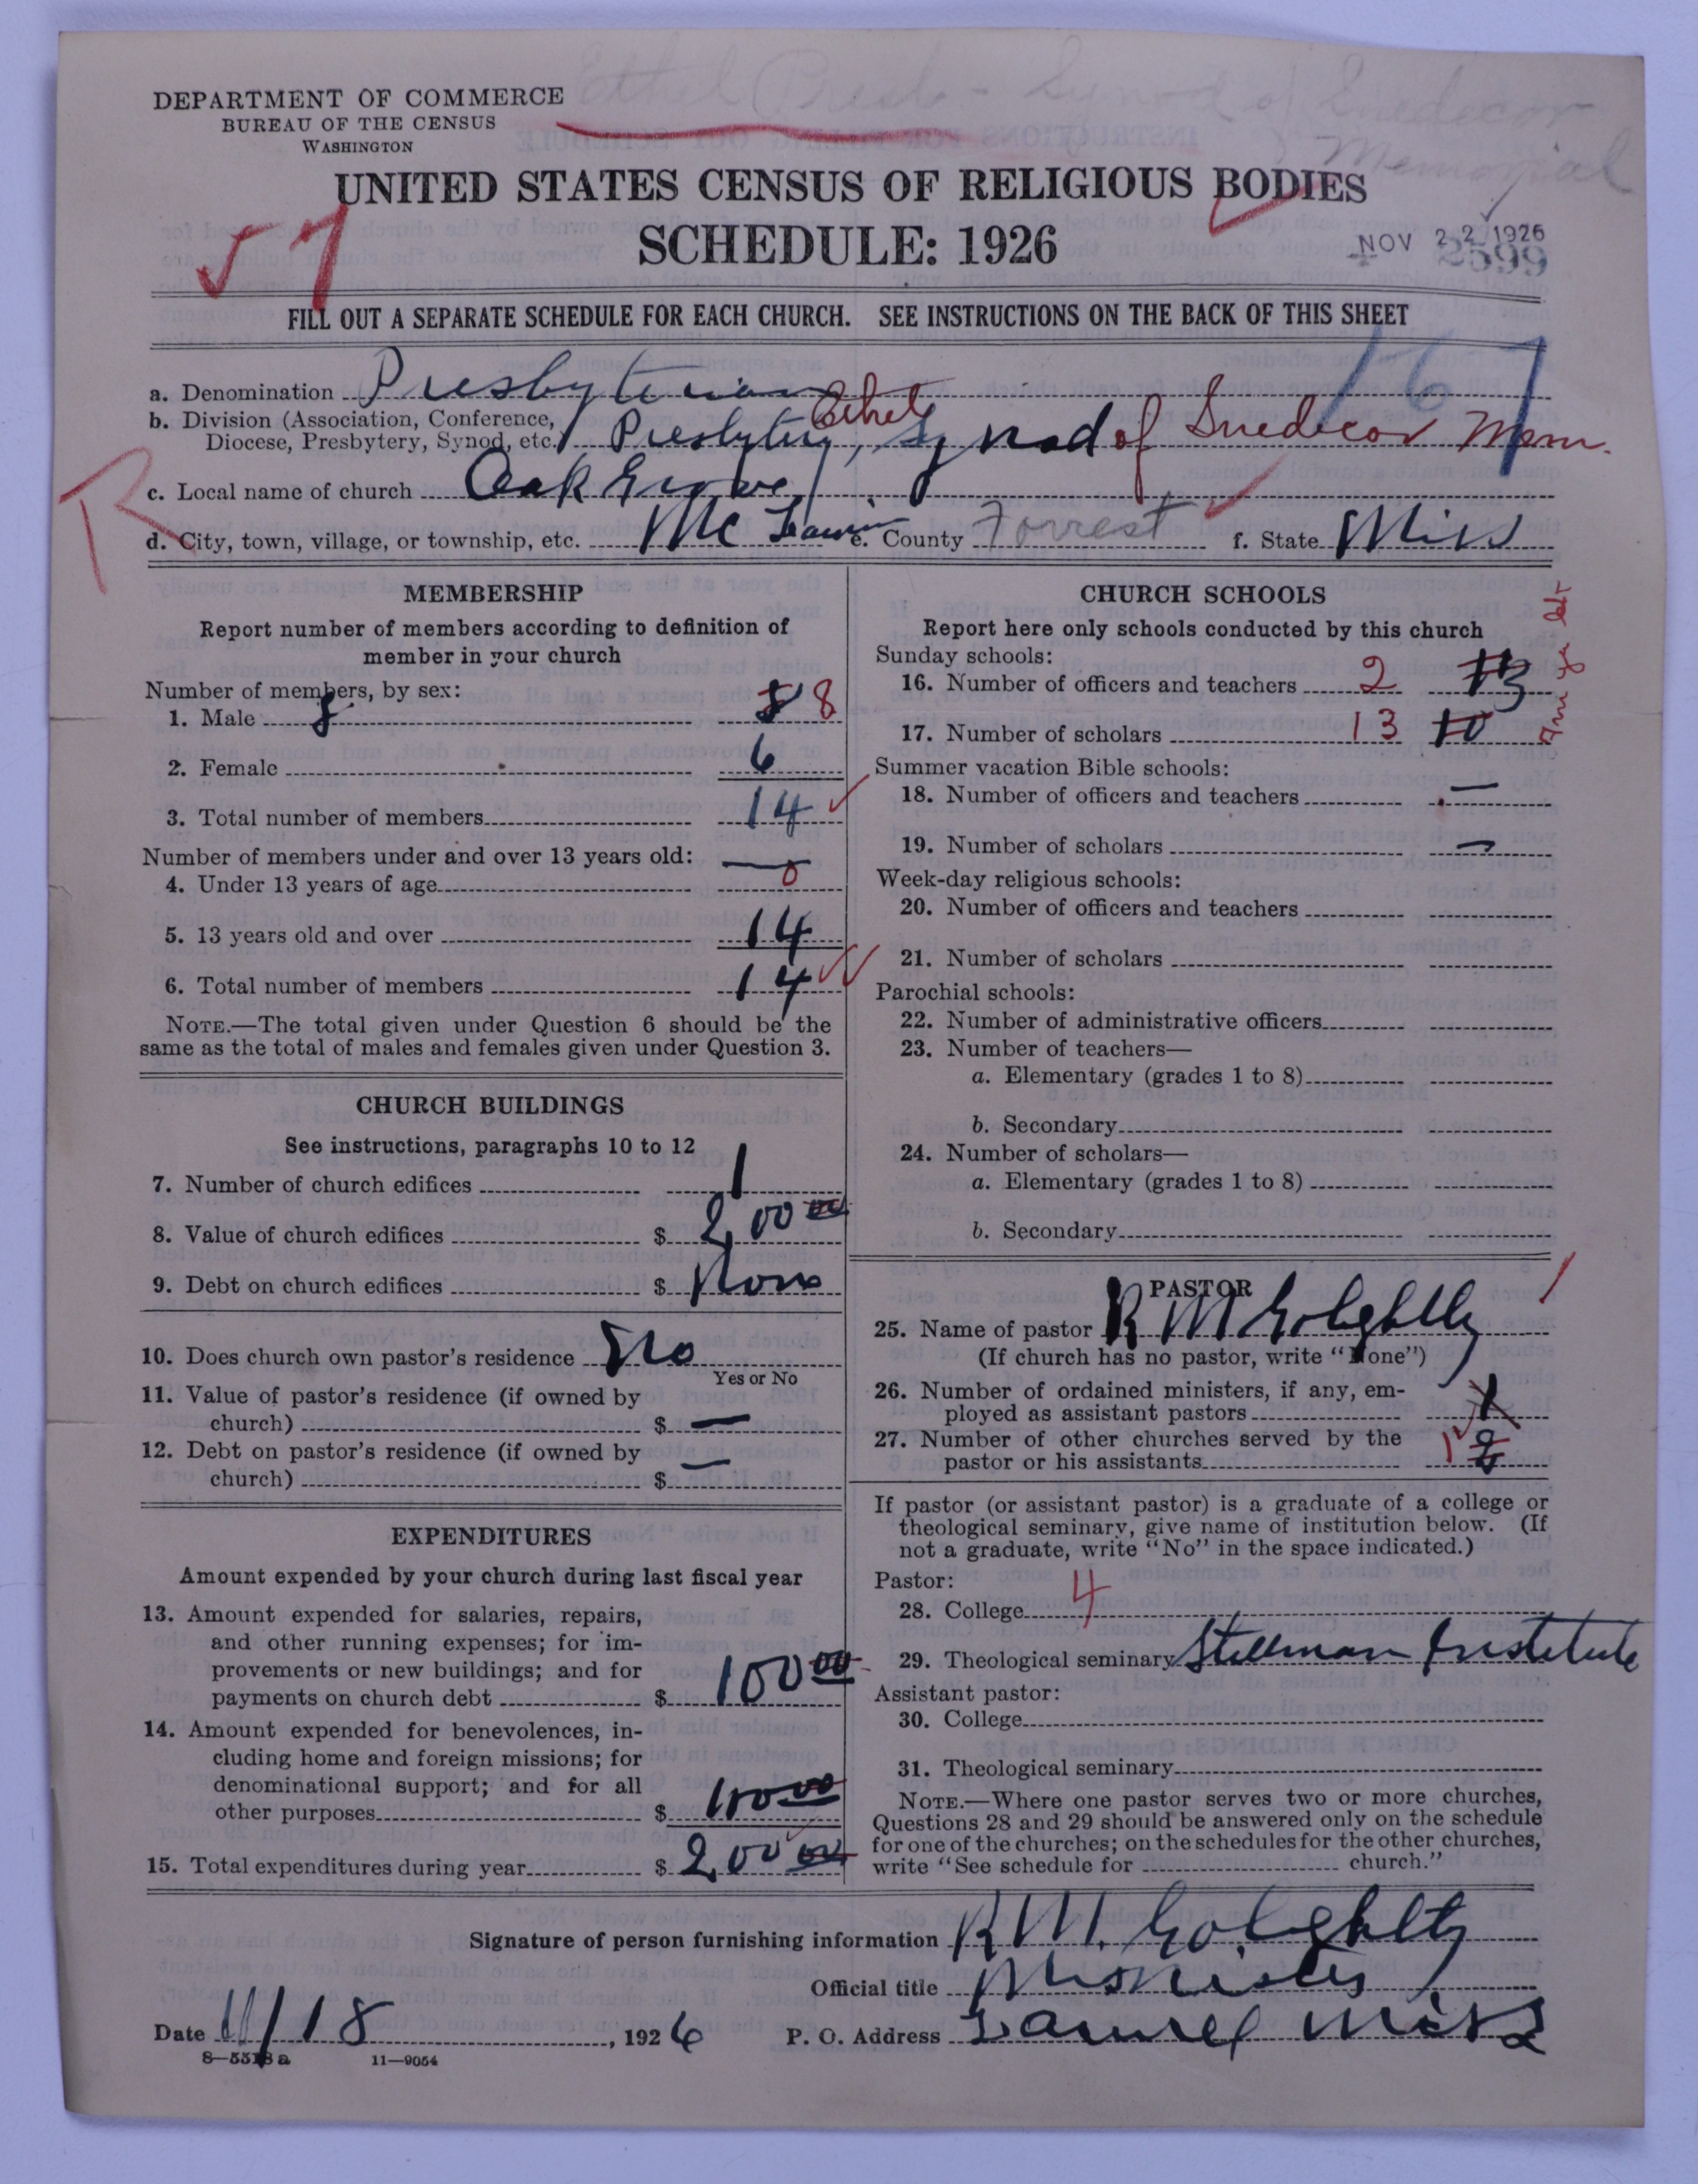 Ethel Presb - Synod of Snedecor
Memorial
DEPARTMENT OF COMMERCE
BUREAU OF THE CENSUS
WASHINGTON
UNITED STATES CENSUS OF RELIGIOUS BODIES
SCHEDULE: 1926
NOV 22 1926
2599
FILL OUT A SEPARATE SCHEDULE FOR EACH CHURCH. SEE INSTRUCTIONS ON THE BACK OF THIS SHEET
167
a. Denomination Presbyterian
b. Division (Association, Conference,
Diocese, Presbytery, Synod, etc. Presbytery, Ethel Synod of Snedecor Mem.
c. Local name of church Oak Grove
R
d. City, town, village, or township, etc. McLaurin e. County Forrest f. State Miss
MEMBERSHIP
Report number of members according to definition of
member in your church
Number of members, by sex:
1. Male 8 8 8
2. Female 6
3. Total number of members 14
Number of members under and over 13 years old:
4. Under 13 years of age — 0
5. 13 years old and over 14
6. Total number of members 14
NOTE.—The total given under Question 6 should be the
same as the total of males and females given under Question 3.
CHURCH BUILDINGS
See instructions, paragraphs 10 to 12
7. Number of church edifices 1
8. Value of church edifices $ 200 00
9. Debt on church edifices $ None
10. Does church own pastor's residence No
Yes or No
11. Value of pastor's residence (if owned by
church) $ —
12. Debt on pastor's residence (if owned by
church) $ —
EXPENDITURES
Amount expended by your church during last fiscal year
13. Amount expended for salaries, repairs,
and other running expenses; for im-
provements or new buildings; and for
payments on church debt $ 100 00
14. Amount expended for benevolences, in-
cluding home and foreign missions; for
denominational support; and for all
other purposes $ 100 00
15. Total expenditures during year $ 200 00
CHURCH SCHOOLS
Report here only schools conducted by this church
Sunday schools:
16. Number of officers and teachers 2 3
17. Number of scholars 13 10
Summer vacation Bible schools:
18. Number of officers and teachers —
19. Number of scholars —
Week-day religious schools:
20. Number of officers and teachers
21. Number of scholars
Parochial schools:
22. Number of administrative officers
23. Number of teachers—
a. Elementary (grades 1 to 8)
b. Secondary
24. Number of scholars—
a. Elementary (grades 1 to 8)
b. Secondary
PASTOR
25. Name of pastor R M Golightly
(If church has no pastor, write "None")
26. Number of ordained ministers, if any, em-
ployed as assistant pastors 1
27. Number of other churches served by the
pastor or his assistants 1 2
If pastor (or assistant pastor) is a graduate of a college or
theological seminary, give name of institution below. (If
not a graduate, write "No" in the space indicated.)
Pastor:
28. College 4
29. Theological seminary Stillman Institute
Assistant pastor:
30. College
31. Theological seminary
NOTE.—Where one pastor serves two or more churches,
Questions 28 and 29 should be answered only on the schedule
for one of the churches; on the schedules for the other churches,
write "See schedule for church."
Signature of person furnishing information R M. Golightly
Official title Minister
Date 11/18, 1926 P. O. Address Laurel Miss
8—5518 a 11—9054